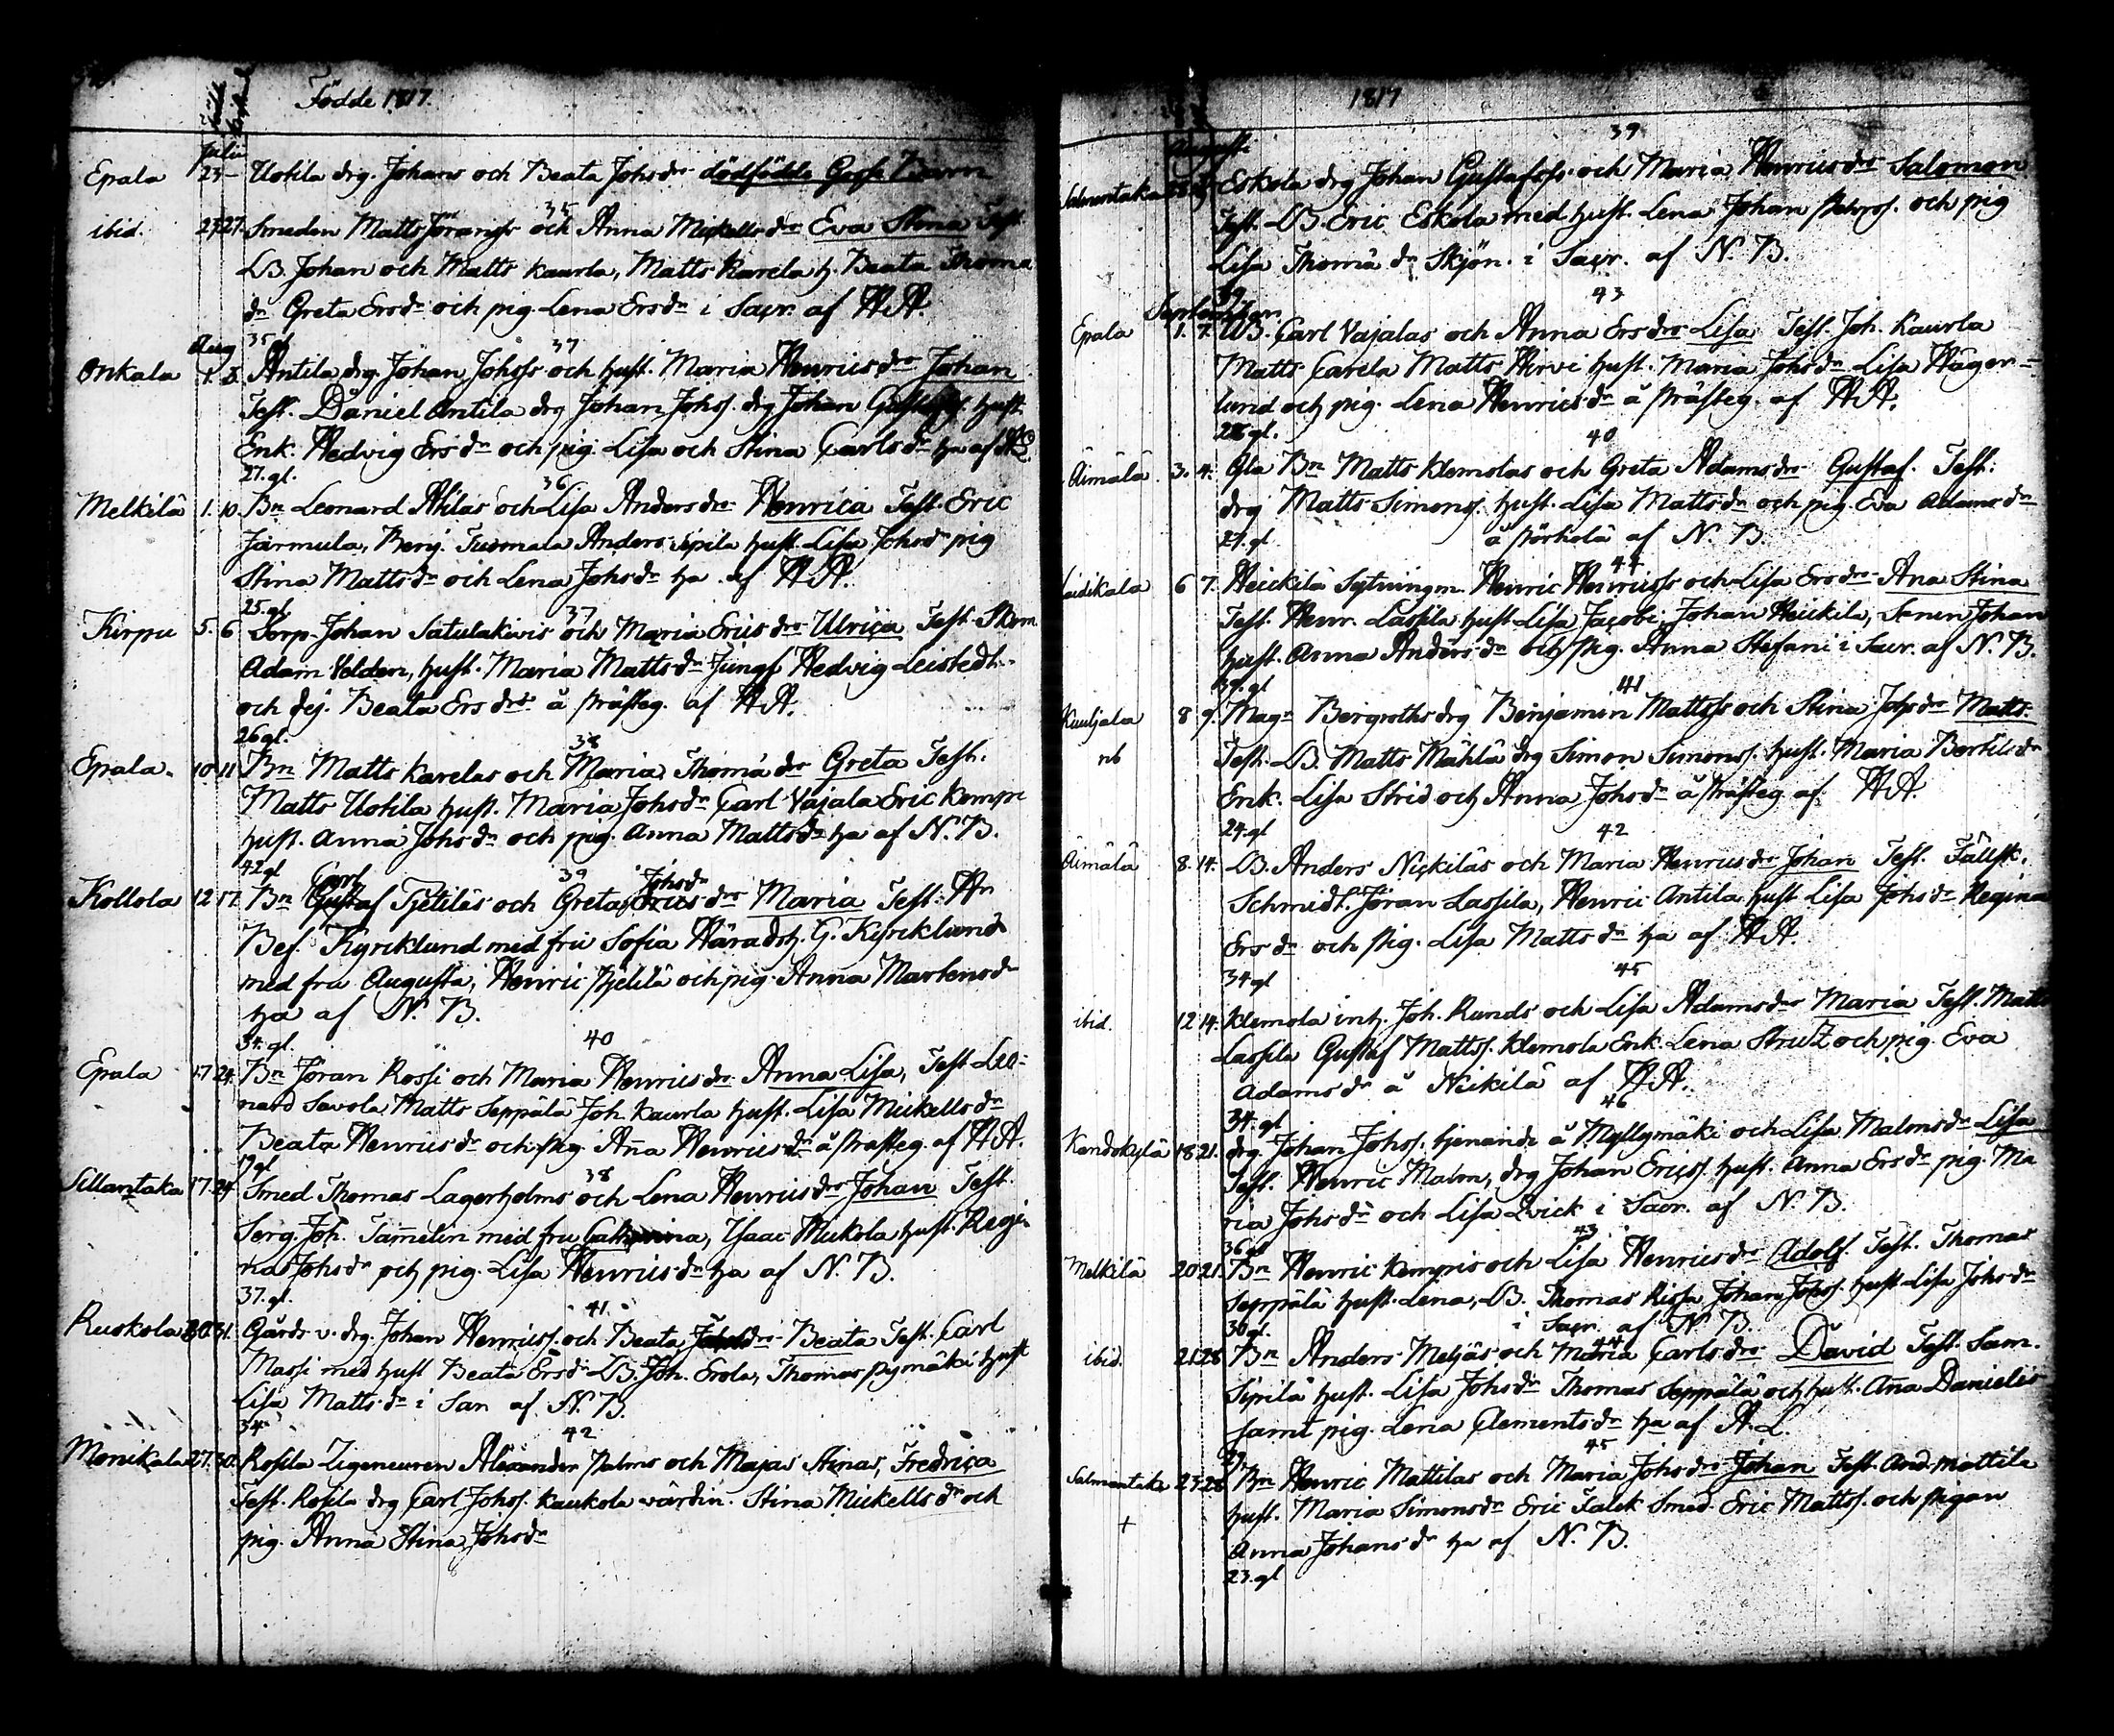 Födde 1817.
Julii
Epala 23 – Uotila drg. Johans och Beata Johsdrs dödfödda Gosse Barn
35
ibid. 27 27. Smeden Matts Jöranss och Anna Mickellsdrs Eva Stina Test.
LB. Johan och Matts Kaurla, Matts Karela h. Beata Thoma
dr Greta Ersdr och pig. Lena Ersdr i Sacr. af HA.
Aug 35 gl. 37
Onkala 1. 3. Antila drg. Johan Johss och hust. Maria Henricsdrs Johan
Test. Daniel Antila drg Johan Johss. drg Johan Gustafss. hust.
Enk. Hedvig Ersdr och pig. Lisa och Stina Carlsdr ha af
27. gl. 36
Melkilä 1. 10. Bn Leonard Atilas och Lisa Andersdrs Henrica Test. Eric
Jarmula, Benj. Tuomala Anders Sipila hust. Lisa Johsdr pig
Stina Mattsdr och Lena Johsdr ha af HA.
25. gl. 37
Kirpu 5. 6. Torp. Johan Satulakivis och Maria Ericsdrs Ulrica Test. Skom
Adam Velden, hust. Maria Mattsdr Jungf Hedvig Leistedt
och dej. Beata Ersdrs å Prästeg. af HA.
26 gl. 38
Epala. 10 11 Bn Matts Karelas och Maria Thomädrs Greta Test.
Matts Uotila hust. Maria Johsdr Carl Vajala Eric Kempi
hust. Anna Johsdr och pig. Anna Mattsdr ha af N. B.
42 gl Carl 39 Johsdr
Kollola 12 17. Bn Gustaf Pjetiläs och Greta Ericsdrs Maria Test. Hr
Bef. Kyrcklund med fru Sofia Häradsh. G. Kyrcklund
med fru Augusta, Henric Pjetilä och pig. Anna Martensdr
ha af N. B.
34. gl. 40
Epala 17 24. Bn Jöran Rossi och Maria Henricsdrs Anna Lisa, Test. Leo-
nard Savola Matts Seppälä Joh. Kaurla hust. Lisa Mickellsdr
Beata Henricsdr och pig. Ana Henricsdr å Prästeg. af HA.
19 gl 38
Sillantaka 17. 24. Smed Thomas Lagerholms och Lena Henricsdrs Johan Test.
Serg. Joh. Tamelin med fru Catharina, Isaac Mukola hust. Regi-
na Johsdr och pig. Lisa Henricsdr ha af N. B.
37. gl. 41.
Ruskola 20. 31. Gårds v. drg. Johan Henricss. och Beata Johsdrs Beata Test. Carl
Massi med hust Beata Ersdr LB. Joh. Erola, Thomas Pymäki hust
Lisa Mattsdr i Sac af N. B.
34 42
Monikala 27. 30. Rosila Zigeneuren Alexander Palms och Majas Stinas, Fredrica
Test. Rosila drg Carl Johss. Kaukola värdin. Stina Mickellsdr och
pig. Anna Stina Johsdr
1817
39
Augusti
Salmentaka Eskola drg Johan Gustafss och Maria Henricsdrs Salomon
Test. LB. Eric Eskola med hust. Lena Johan Petrss. och pig
Lisa Thomädr Skjön. i Sacr. af N. B.
September 39 43
Epala 1. 7. LB. Carl Vajalas och Anna Ersdrs Lisa Test. Joh. Kaurla
Matts Carela Matts Hirvi hust. Maria Johsdr Lisa Häger-
lund och pig. Lena Henricsdr å Prästeg. af HA.
28 gl. 40
Äimälä 3. 4. Gla Bn Matts Klemolas och Greta Adamsdrs Gustaf. Test.
drg Matts Simonss. hust. Lisa Mattsdr och pig. Eva Adamsdr
27. gl å Pörhölä af N. B.
44
Laidikala 6 7. Heickilä Sytningm. Henric Henricss och Lisa Ersdrs Ana Stina
Test. Henr. Lassila hust Lisa Jacobi, Johan Heickila, Sonen Johan
hust. Anna Andersdr och pig. Anna Stefani i Sacr. af N. B.
39. gl 41
Kauljala 8 9. Magr Bergroths drg Benjamin Mattss och Stina Johsdrs Matts.
nb Test. LB. Matts Mähla drg Simon Simonss. hust. Maria Bertilsdr
Enk. Lisa Strid och Anna Johsdr å Prästeg. af HA.
24. gl 42
Äimälä 8. 14. LB. Anders Nickiläs och Maria Henricsdrs Johan Test. Fältsk.
Schmidt. Jöran Lassila, Henric Antila hust Lisa Johsdr Regina
Ersdr och pig. Lisa Mattsdr ha af HA.
34 gl 45
ibid. 12 14. Klemola inh. Joh. Runds och Lisa Adamsdrs Maria Test. Matts
Lassila Gustaf Mattss. Klemola Enk. Lena Strutz och pig. Eva
Adamsdr å Nickilä af HA.
34. gl 46
Kandokylä 18 21. drg Johan Johss. tjenande å Myllymäki och Lisa Malmsdr Lisa
Test. Henric Malm, drg Johan Ericss. hust. Anna Ersdr pig. Ma
ria Johsdr och Lisa Qvick i Sacr. af N. B.
36 gl 43
Melkilä 20 21. Bn Henric Kempis och Lisa Henricsdrs Adolf. Test. Thomas
Seppälä hust. Lena, LB. Thomas Rissa Johan Johss. hust Lisa Johsdr
30 gl. i Sacr. af N. B.
44
ibid. 21 28 Bn Anders Meljäs och Maria Carlsdrs David Test. Sam.
Sipilä hust. Lisa Johsdr Thomas Seppälä och hust. Ana Danielis
samt pig. Lena Clementsdr ha af A. L.
29 45
Salmentaka 23. 28 Bn Henric Mattilas och Maria Johsdrs Johan Test. And. Mattila
hust. Maria Simonsdr Eric Falck Smed. Eric Mattss. och pigan
+ Anna Johansdr ha af N. B.
23. gl